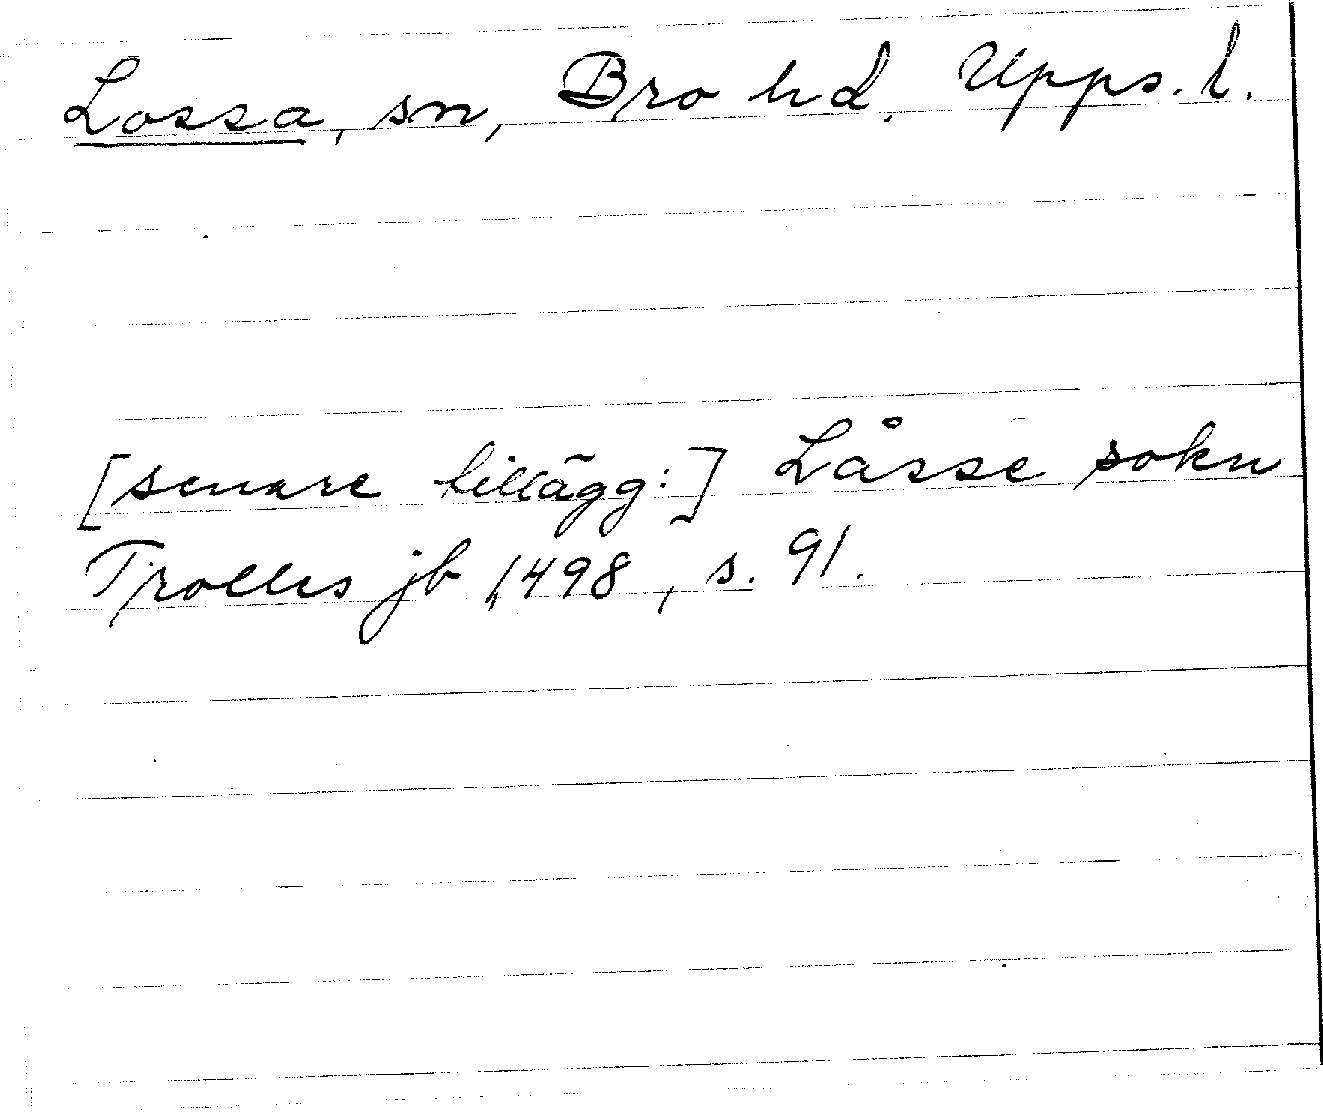 Lossa, sn, Bro hd. Upps. l.
[senare tillägg:] Låsse sokn
Trolles jb 1498, s. 91.